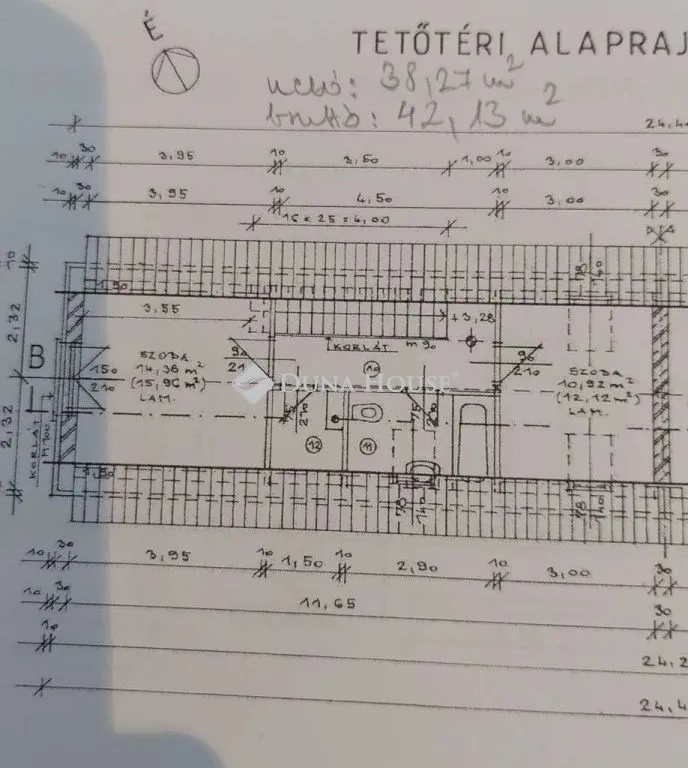 É
TETŐTÉRI ALAPRAJ
nettó: 38,27 m²
bruttó: 42,13 m²
24,4
10 30 3,95 10 3,50 1,00 10 3,00 30
10 30 3,95 10 4,50 10 3,00 30
16 x 25 = 4,00
10
1,90
78
140
2,32
3,55
+3,28
KORLÁT m 90
B
150
210
SZOBA
14,36 m²
(15,96 m²)
LAM.
90
21
10
90
210
SZOBA
10,92 m²
(12,12 m²)
LAM.
DUNA HOUSE
75
210
75
210
2,32
KORLÁT
M 100
12
11
1,90
78
140
78
140
10 30 3,95 10 1,50 10 2,90 10 3,00 30
10 30 11,65 30
10 24,2
24,4